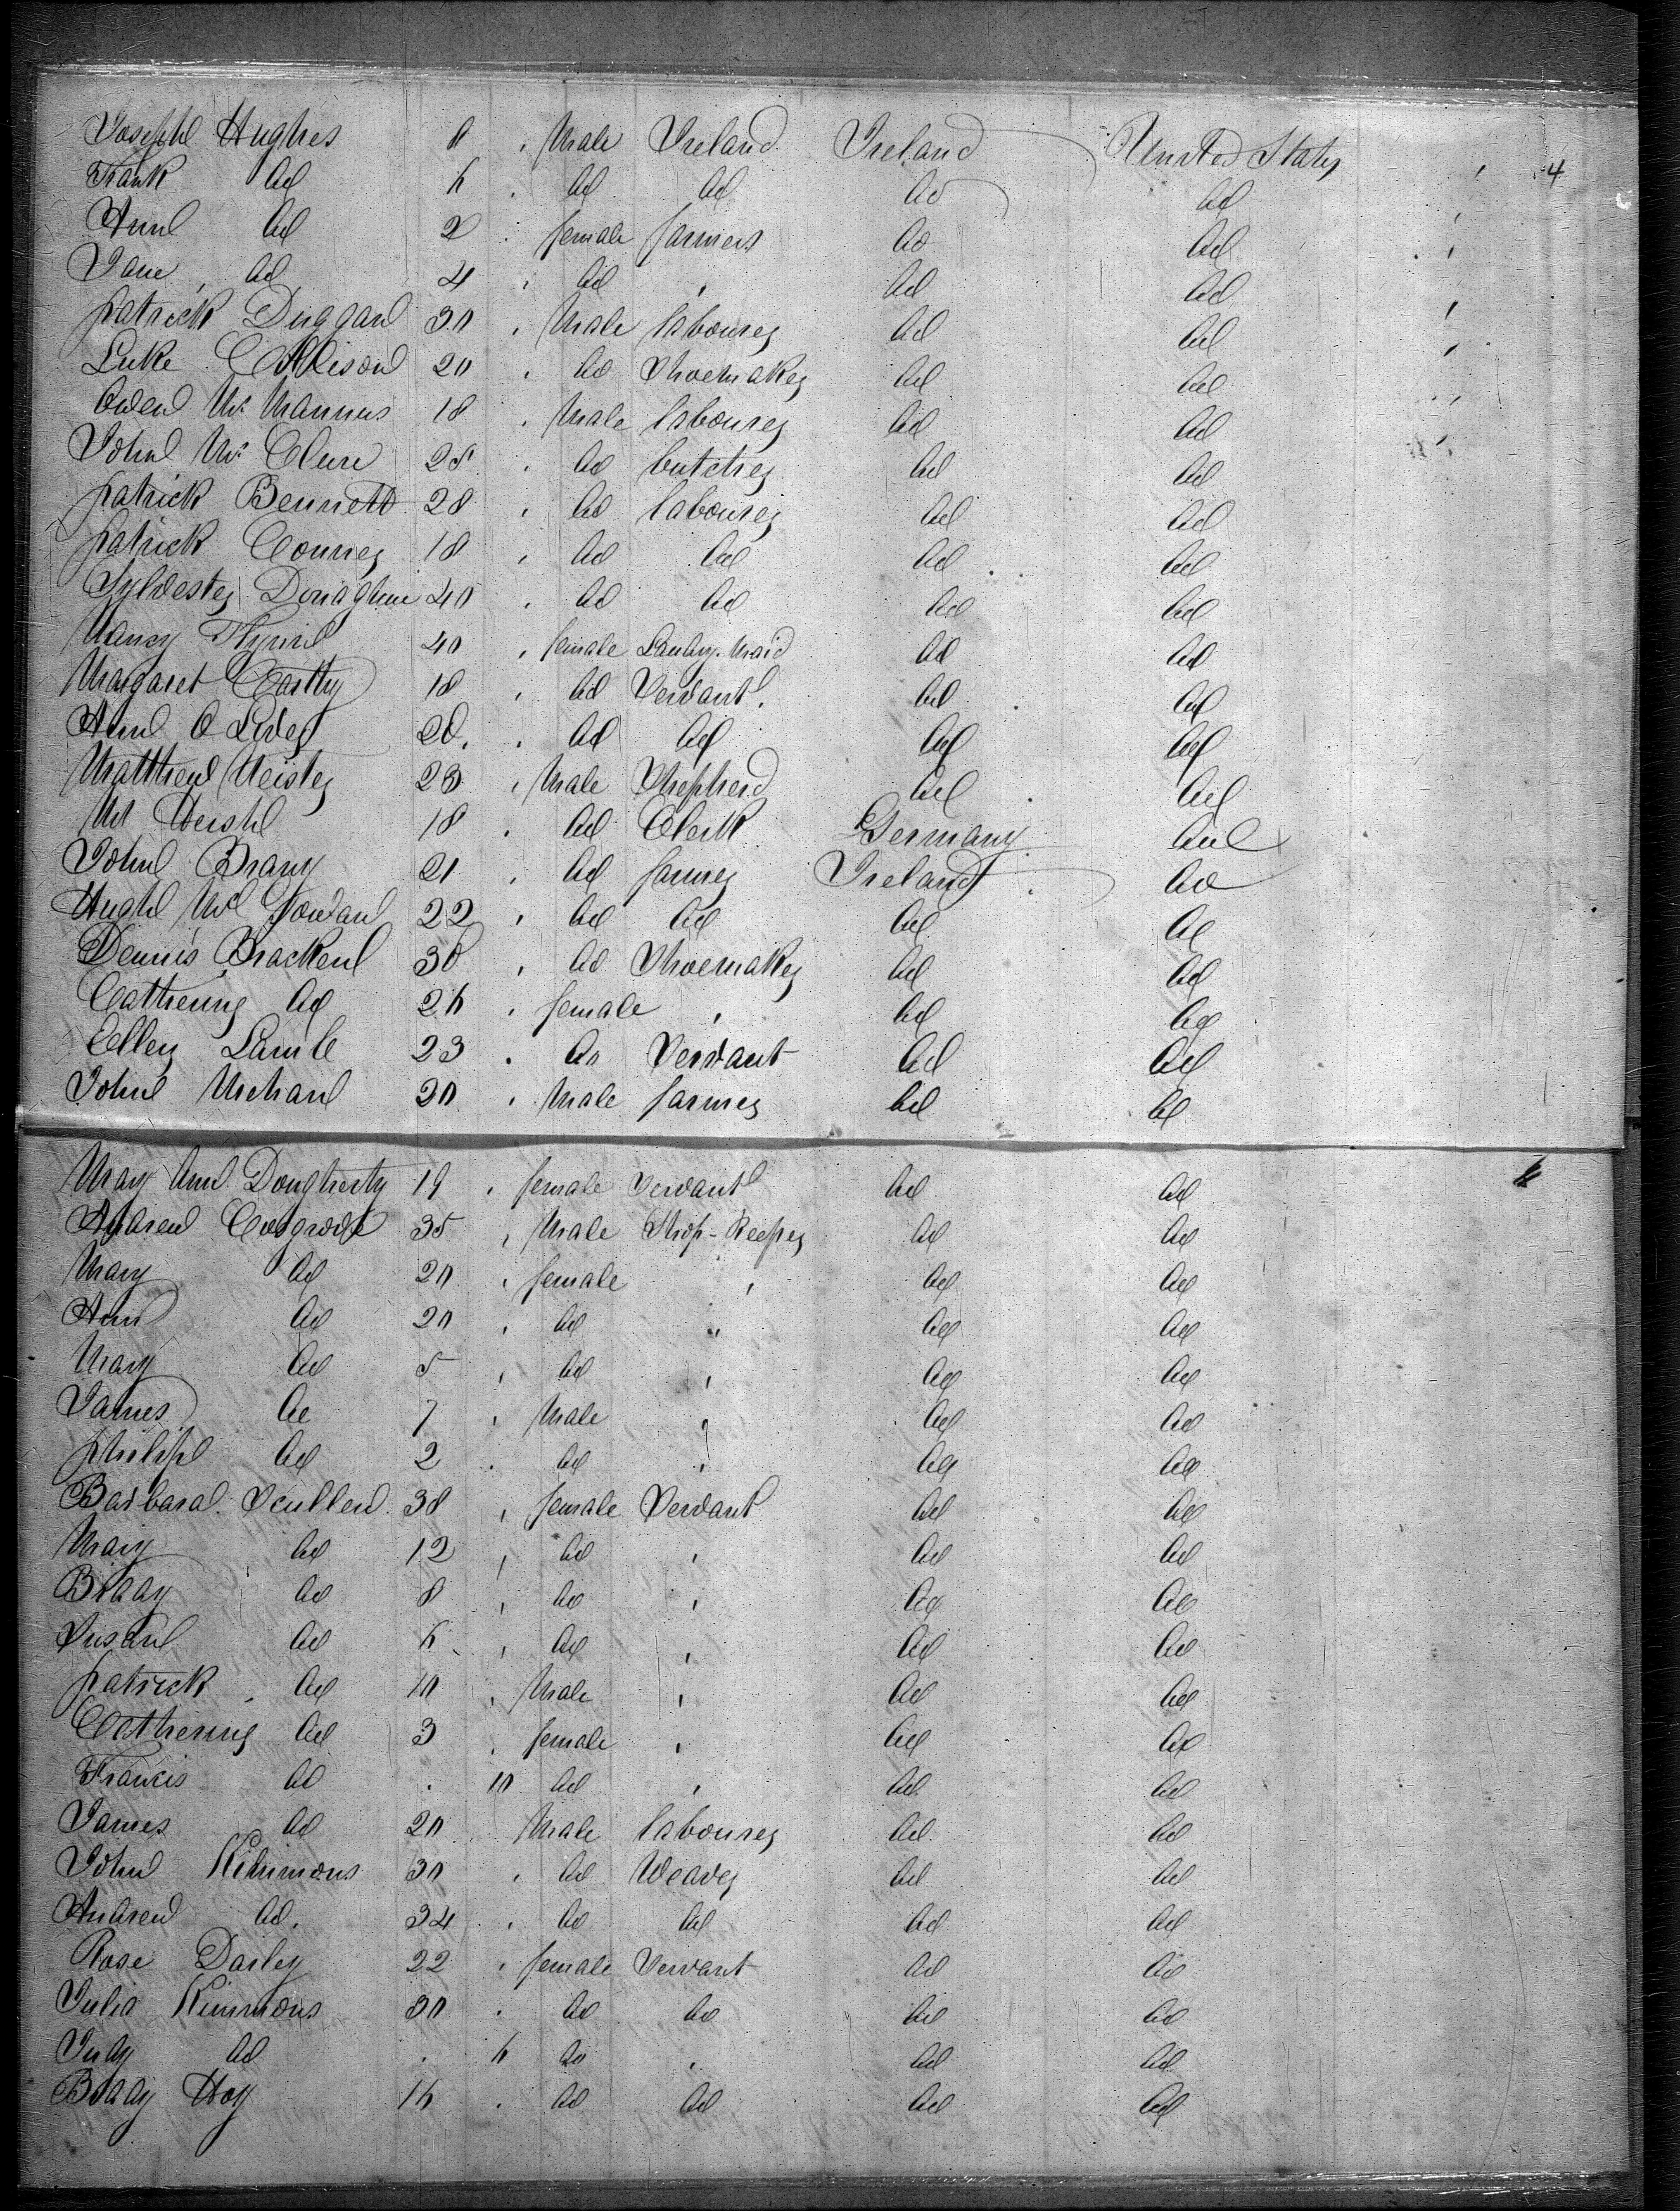 Joseph Hughes 8 Male Ireland Ireland United States 4
Frank do 6 do do do do
Ann do 2 female farmers do do
Jane do 4 do do do
Patrick Duggan 30 Male labourer do do
Luke 20 do Shoemaker do do
Owen Mc Mannus 18 Male labourer do do
John Mc Clure 28 do butcher do do
Patrick Bennett 28 do labourer do do
Patrick 18 do do do do
Sylvester 40 do do do do
Nancy 40 female Maid do do
Margaret Carthy 18 do Servant do do
Ann O 20 do do do do
Matthew 23 Male Shepherd do do
18 do Clerk Germany do
John 21 do farmer Ireland do
Hugh Mc Gowan 22 do do do do
Dennis Bracken 30 do Shoemaker do do
Catherine do 26 female do do
Ellen Lamb 23 do Servant do do
John 20 Male farmer do do
Mary Ann Dougherty 19 female Servant do do
Andrew Cosgrove 35 Male Shop-Keeper do do
Mary do 20 female do do
Ann do 20 do do do
Mary do 5 do do do
James do 7 Male do do
Philip do 2 do do do
Barbara Scullen 38 female Servant do do
Mary do 12 do do do
Biddy do 8 do do do
Susan do 6 do do do
Patrick do 10 Male do do
Catherine do 3 female do do
Francis do 10 do do do
James do 20 Male labourer do do
John 30 do Weaver do do
Andrew do 34 do do do do
Rose Darley 22 female Servant do do
Julia Kimmons 30 do do do do
Judy do 6 do do do
Biddy Hoy 16 do do do do